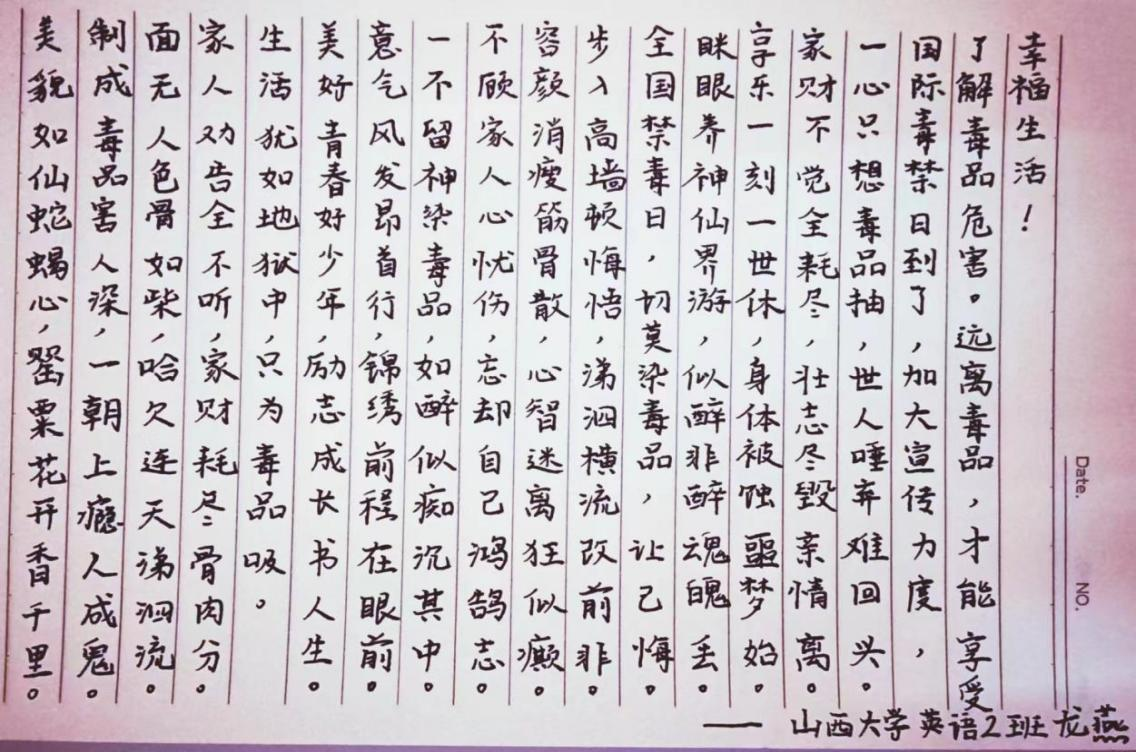 美貌如仙蛇蝎心,罂粟花开香千里。
制成毒品害人深,一朝上瘾人成鬼。
面无人色骨如柴,哈欠连天涕泗流。
家人劝告全不听,家财耗尽骨肉分。
生活犹如地狱中,只为毒品吸。
美好青春好少年,励志成长书人生。
意气风发昂首行,锦绣前程在眼前。
一不留神染毒品,如醉似痴沉其中。
不顾家人心忧伤,忘却自己鸿鹄志。
容颜消瘦筋骨散,心智迷离狂似癫。
步入高墙顿悔悟,涕泗横流改前非。
全国禁毒日,切莫染毒品,让己悔。
眯眼养神仙界游,似醉非醉魂魄丢。
享乐一刻一世休,身体被蚀噩梦始。
家财不觉全耗尽,壮志尽毁亲情离。
一心只想毒品抽,世人唾弃难回兴。
国际毒禁日到了,加大宣传力度,
了解毒品危害。远离毒品,才能享受
幸福生活!
——山西大学英语2班龙燕
Date.
NO.